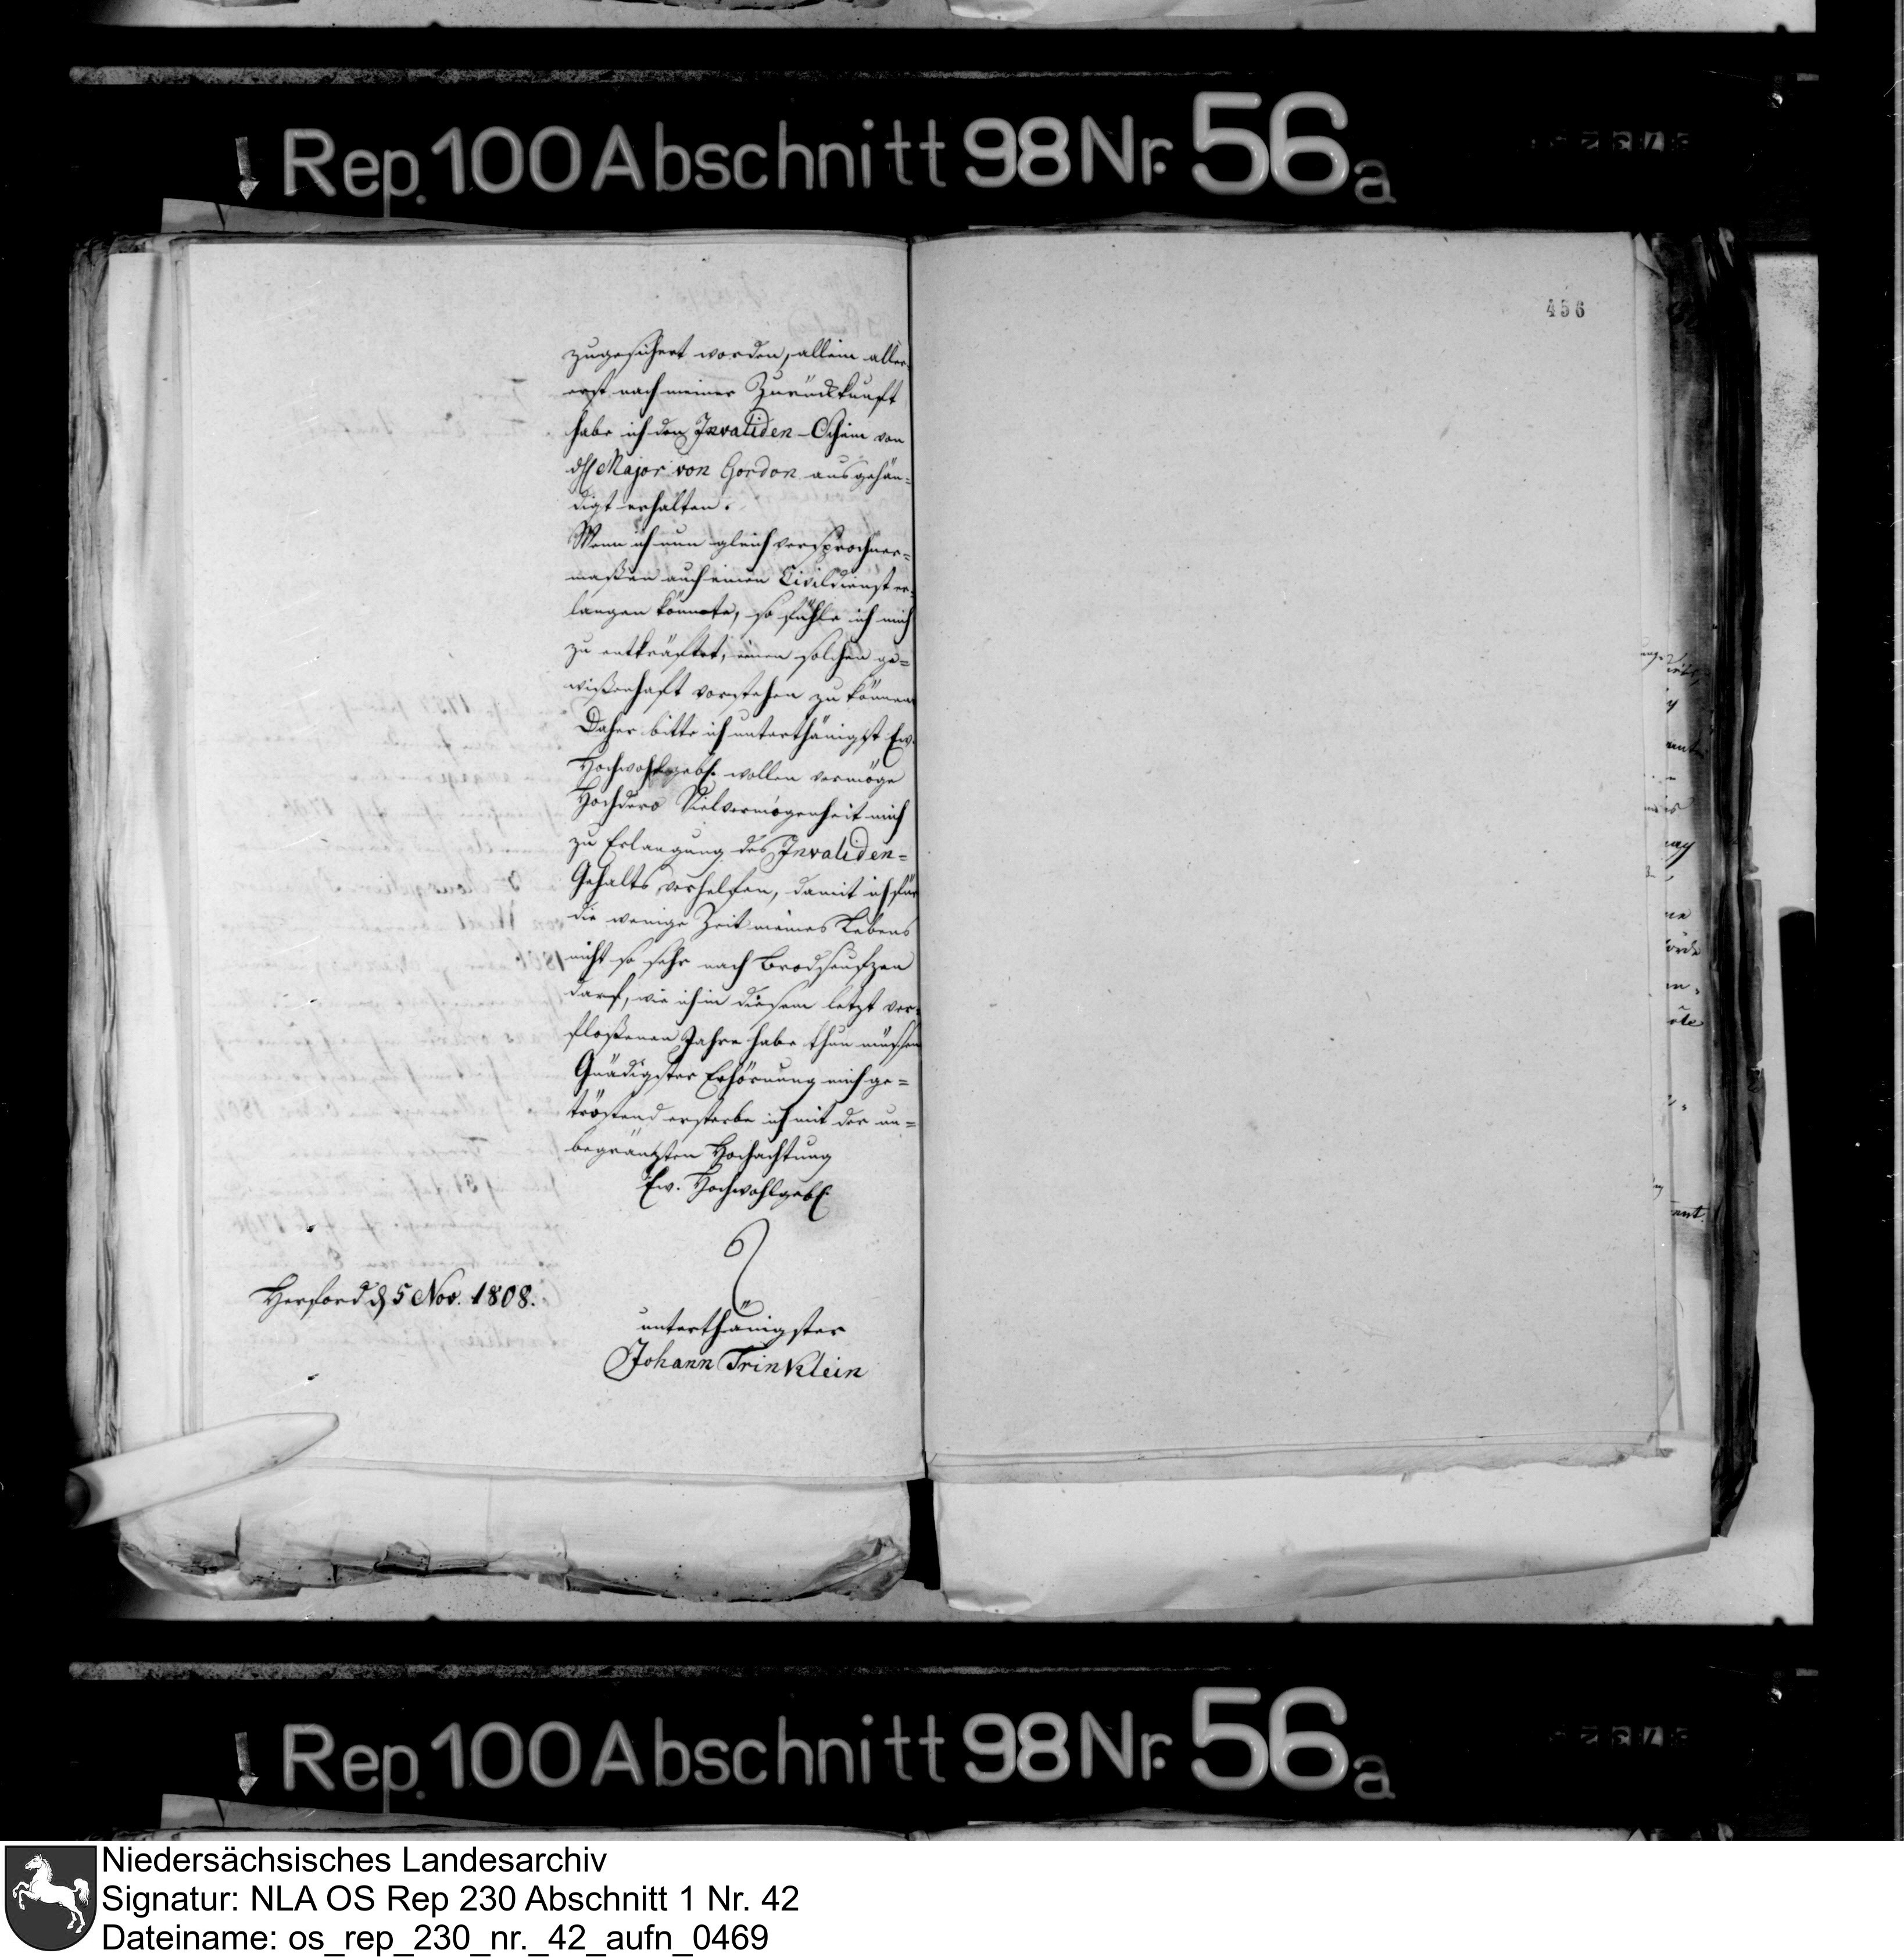 Rep. 100 Abschnitt 98 Nr. 56a
456
zugesichert worden, allein aller-
erst nach meiner Zurückkunft
habe ich den Invaliden-Schein von
dH Major von Gordon ausgehän-
digt erhalten.
Wenn ich nun gleich versprochner-
maßen auch einen Civildienst er-
langen könnte, so fühle ich mich
zu entkräftet, einen solchen ge-
wißenhaft vorstehen zu können
Daher bitte ich unterthänigst Ew.
Hochwohlgebh. wollen vermöge
Hochdero Vielvermögenheit mich
zu Erlangung des Invaliden-
Gehalts verhelfen, damit ich für
die wenige Zeit meines Lebens
nicht so sehr nach Brod seufzen
darf, wie ich in diesem letzt ver-
floßenen Jahre habe thun müssen
Gnädigster Erhörung mich ge-
tröstend ersterbe ich mit der un-
begränzten Hochachtung
Ew. Hochwohlgebh.
Herford d 5 Nov. 1808.
unterthänigster
Johann Trinklein
Rep. 100 Abschnitt 98 Nr. 56a
Niedersächsisches Landesarchiv
Signatur: NLA OS Rep 230 Abschnitt 1 Nr. 42
Dateiname: os_rep_230_nr._42_aufn_0469